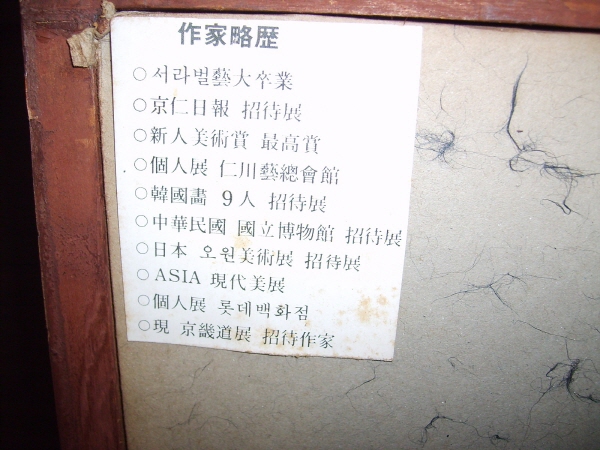 作家略歴
○서라벌藝大卒業
○京仁日報 招待展
○新人美術賞 最高賞
○個人展 仁川藝總會館
○韓國畵 9人 招待展
○中華民國 國立博物館 招待展
○日本 오원美術展 招待展
○ASIA 現代美展
○個人展 롯데백화점
○現 京畿道展 招待作家